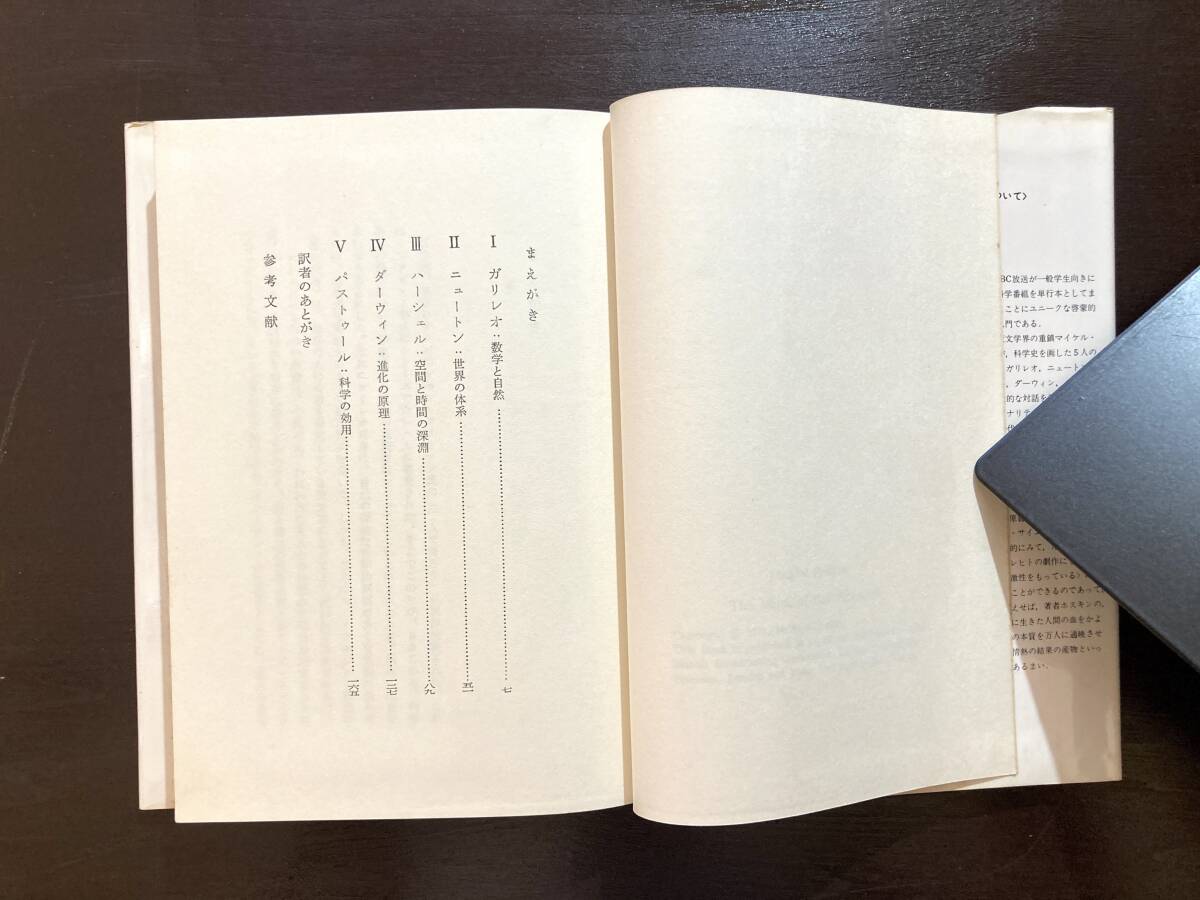 まえがき
I ガリレオ：数学と自然……七
II ニュートン：世界の体系……五一
III ハーシェル：空間と時間の深淵……八九
IV ダーウィン：進化の原理……一二七
V パストゥール：科学の効用……一六五
訳者のあとがき
参考文献
ついて〉
BC放送が一般学生向きに
学番組を単行本としてま
ことにユニークな啓蒙的
門である。
文学界の重鎮マイケル・
，科学史を画した５人の
ガリレオ，ニュート
，ダーウィン，
的な対話を
ナリテ
・サイ
的にみて，
レヒトの劇作に
激性をもっている〉
ことができるのであって
えせば，著者ホスキンの，
に生きた人間の血をかよ
の本質を万人に通暁させ
情熱の結果の産物といっ
あるまい。